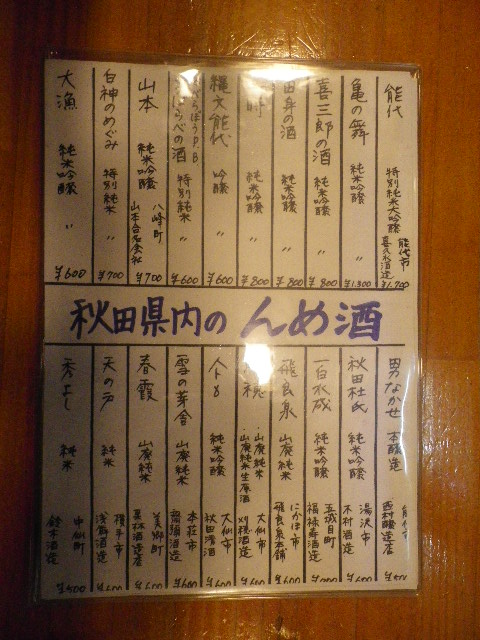 能代 特別純米大吟醸 能代市 喜久水酒造 ¥1,700
亀の舞 純米吟醸 〃 ¥1,300
喜三郎の酒 純米吟醸 〃 ¥800
の酒 純米吟醸 〃 ¥800
純米吟醸 〃 ¥800
縄文能代 吟醸 〃 ¥600
の酒 特別純米 〃 ¥600
山本 純米吟醸 八峰町 山本合名会社 ¥700
白神のめぐみ 特別純米 〃 ¥700
大漁 純米吟醸 〃 ¥600
秋田県内の んめ酒
男なかせ 本醸造 能代市 西村醸造店
秋田杜氏 純米吟醸 湯沢市 木村酒造 ¥600
一白水成 純米吟醸 五城目町 福禄寿酒造
飛良泉 山廃純米 にかほ市 飛良泉本舗 ¥600
山廃純米 山廃純米生原酒 大仙市 刈穂酒造
純米吟醸 大仙市 秋田清酒 ¥600
雪の芽舎 山廃純米 本荘市 齋彌酒造 ¥600
春霞 山廃純米 美郷町 栗林酒造店 ¥600
天の戸 純米 横手市 浅舞酒造
秀よし 純米 中仙町 鈴木酒造 ¥500